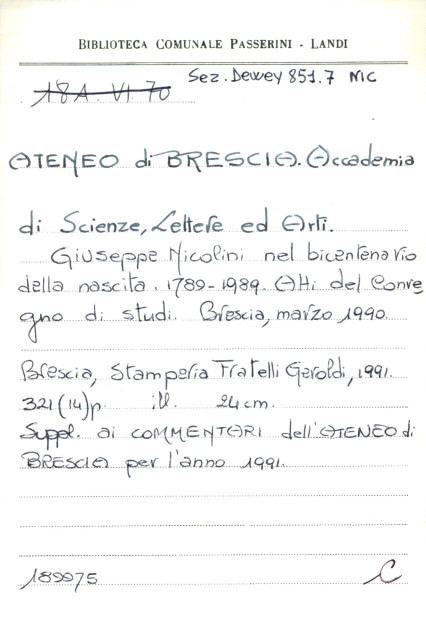 BIBLIOTECA COMUNALE PASSERINI - LANDI
Sez. Dewey 851.7 NIC
18A. VI. 70
ATENEO di BRESCIA. Accademia
di Scienze, Lettere ed Arti.
Giuseppe Nicolini nel bicentenario
della nascita. 1789-1989. Atti del Conve
gno di studi. Brescia, marzo 1990.
Brescia, Stamperia Fratelli Geroldi, 1991.
321(14)p. ill. 24cm.
Suppl. ai COMMENTARI dell'ATENEO di
BRESCIA per l'anno 1991.
189975 C